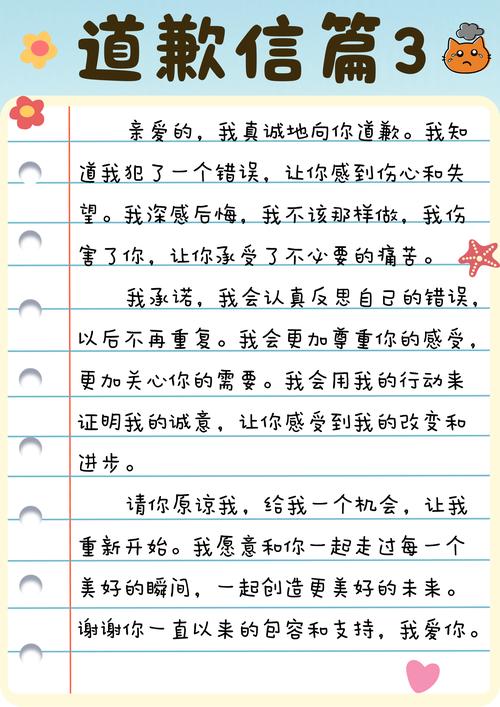 道歉信篇3
亲爱的，我真诚地向你道歉。我知
道我犯了一个错误，让你感到伤心和失
望。我深感后悔，我不该那样做，我伤
害了你，让你承受了不必要的痛苦。
我承诺，我会认真反思自己的错误，
以后不再重复。我会更加尊重你的感受，
更加关心你的需要。我会用我的行动来
证明我的诚意，让你感受到我的改变和
进步。
请你原谅我，给我一个机会，让我
重新开始。我愿意和你一起走过每一个
美好的瞬间，一起创造更美好的未来。
谢谢你一直以来的包容和支持，我爱你。